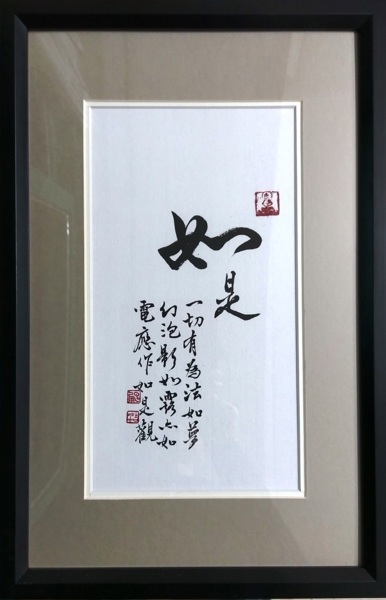 如是
一切有為法如夢
幻泡影如露亦如
電應作如是觀